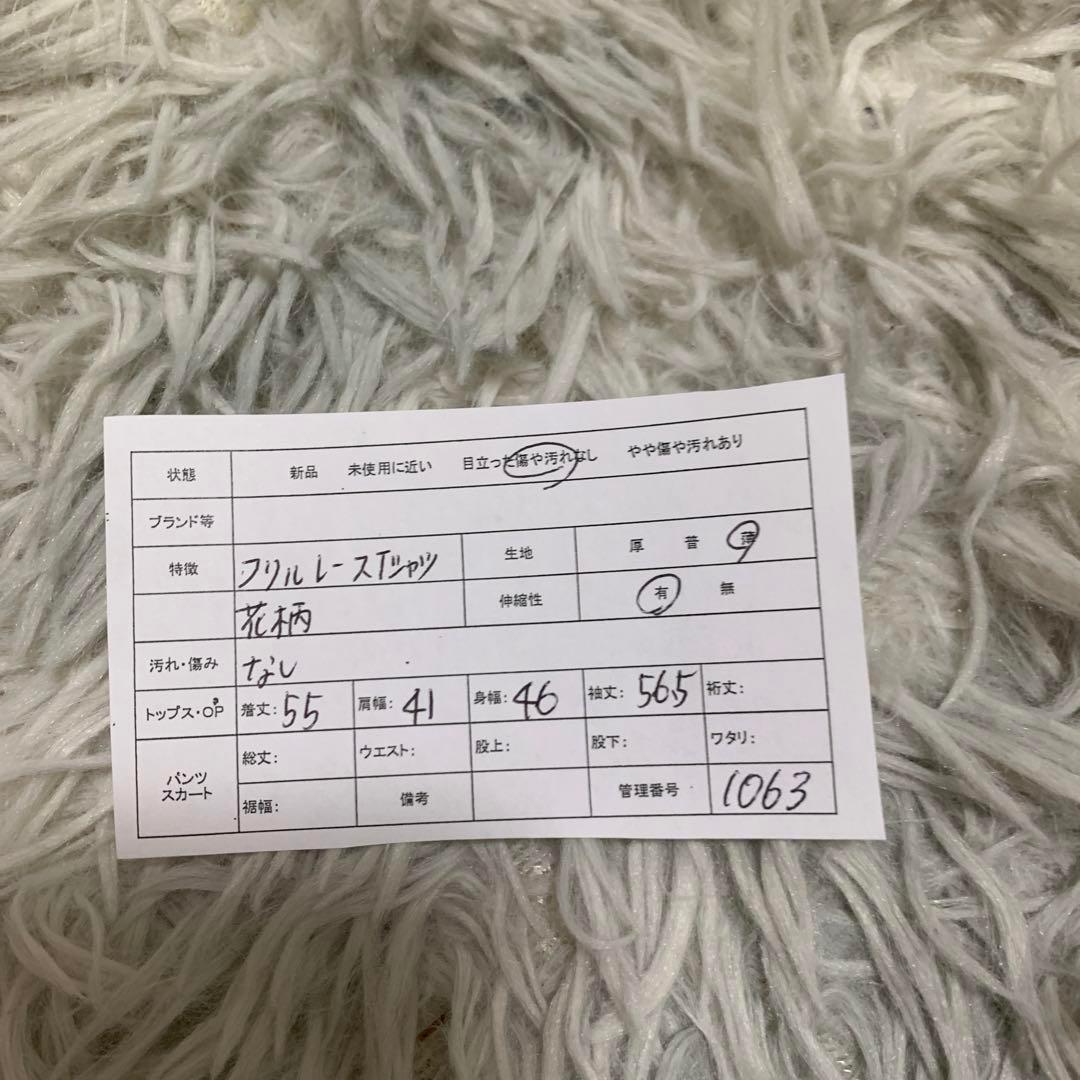 状態 新品 未使用に近い 目立った傷や汚れなし やや傷や汚れあり
ブランド等
特徴 フリルレースTシャツ 生地 厚 普 薄
花柄 伸縮性 有 無
汚れ・傷み なし
トップス・OP 着丈: 55 肩幅: 41 身幅: 46 袖丈: 56.5 裄丈:
パンツ スカート 総丈: ウエスト: 股上: 股下: ワタリ:
裾幅: 備考 管理番号 1063